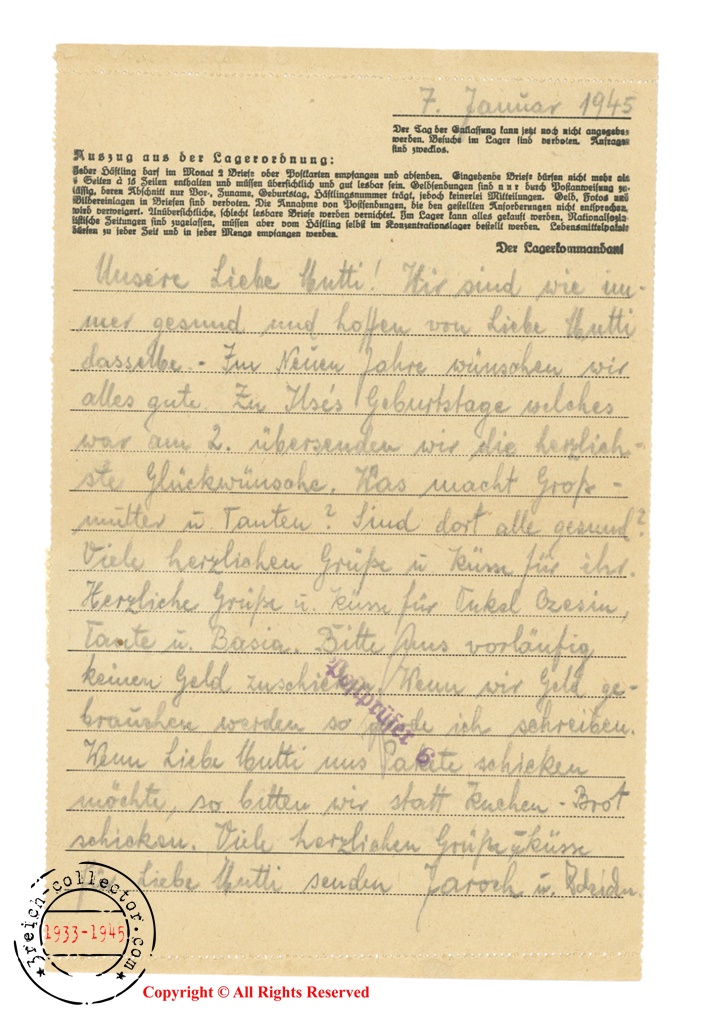 7. Januar 1945
Der Tag der Entlassung kann jetzt noch nicht angegeben
werden. Besuche im Lager sind verboten. Anfragen
sind zwecklos.
Auszug aus der Lagerordnung:
Jeder Häftling darf im Monat 2 Briefe oder Postkarten empfangen und absenden. Eingehende Briefe dürfen nicht mehr als
4 Seiten à 15 Zeilen enthalten und müssen übersichtlich und gut lesbar sein. Geldsendungen sind nur durch Postanweisung zu-
lässig, deren Abschnitt nur Vor-, Zuname, Geburtstag, Häftlingsnummer trägt, jedoch keinerlei Mitteilungen. Geld, Fotos und
Bildereinlagen in Briefen sind verboten. Die Annahme von Postsendungen, die den gestellten Anforderungen nicht entsprechen,
wird verweigert. Unübersichtliche, schlecht lesbare Briefe werden vernichtet. Im Lager kann alles gekauft werden. Nationalsozia-
listische Zeitungen sind zugelassen, müssen aber vom Häftling selbst im Konzentrationslager bestellt werden. Lebensmittelpakete
dürfen zu jeder Zeit und in jeder Menge empfangen werden.
Der Lagerkommandant
Unsere Liebe Mutti! Wir sind wie im-
mer gesund und hoffen von Liebe Mutti
dasselbe. - Im Neuen Jahre wünschen wir
alles gute. Zu Ilse's Geburtstage welches
war am 2. übersenden wir die herzlich-
ste Glückwünsche. Was macht Groß-
mutter u. Tanten? Sind dort alle gesund?
Viele herzlichen Grüße u Küsse für ihr.
Herzliche Grüße u. Küsse für Onkel
Tante u. Basia. Bitte uns vorläufig
keinen Geld zuschicken. Wenn wir Geld ge-
brauchen werden so werde ich schreiben.
Wenn Liebe Mutti uns Pakete schicken
möchte, so bitten wir statt Kuchen - Brot
schicken. Viele herzlichen Grüße u Küsse
für Liebe Mutti senden Jaroch u.
Postprüfer 6
3reich-collector.com
1933-1945
Copyright © All Rights Reserved